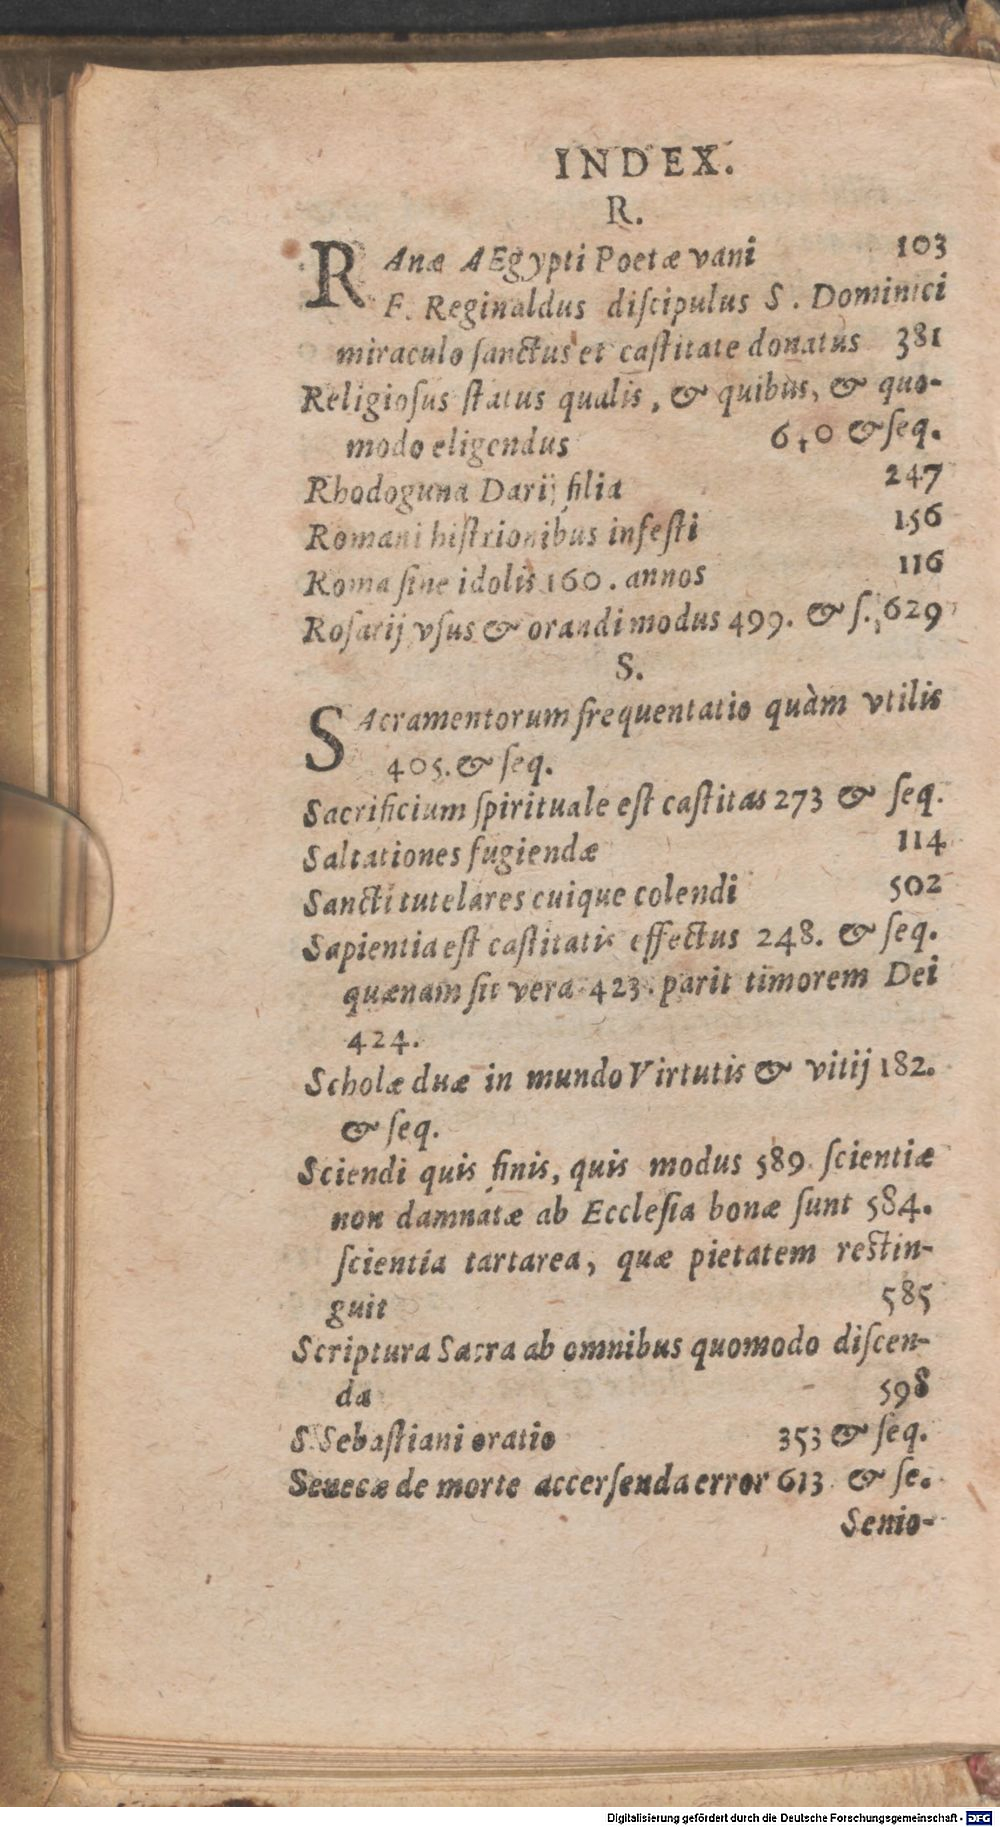 INDEX.
R.
RAnæ AEgypti Poetæ vani 103
F. Reginaldus diſcipulus S. Dominici
miraculo ſanctus et caſtitate donatus 381
Religioſus ſtatus qualis, & quibus, & quo-
modo eligendus 640 & ſeq.
Rhodoguna Darij filia 247
Romani hiſtrionibus infeſti 156
Roma ſine idolis 160. annos 116
Roſarij vſus & orandi modus 499. & ſ. 629
S.
SAcramentorum frequentatio quàm vtilis
405. & ſeq.
Sacrificium ſpirituale eſt caſtitas 273 & ſeq.
Saltationes fugiendæ 114
Sancti tutelares cuique colendi 502
Sapientia eſt caſtitatis effectus 248. & ſeq.
quænam ſit vera 423. parit timorem Dei
424.
Scholæ duæ in mundo Virtutis & vitij 182.
& ſeq.
Sciendi quis finis, quis modus 589. ſcientiæ
non damnatæ ab Eccleſia bonæ ſunt 584.
ſcientia tartarea, quæ pietatem reſtin-
guit 585
Scriptura Sacra ab omnibus quomodo diſcen-
da 598
S. Sebaſtiani oratio 353 & ſeq.
Senecæ de morte accerſenda error 613. & ſe.
Senio-
Digitalisierung gefördert durch die Deutsche Forschungsgemeinschaft - DFG